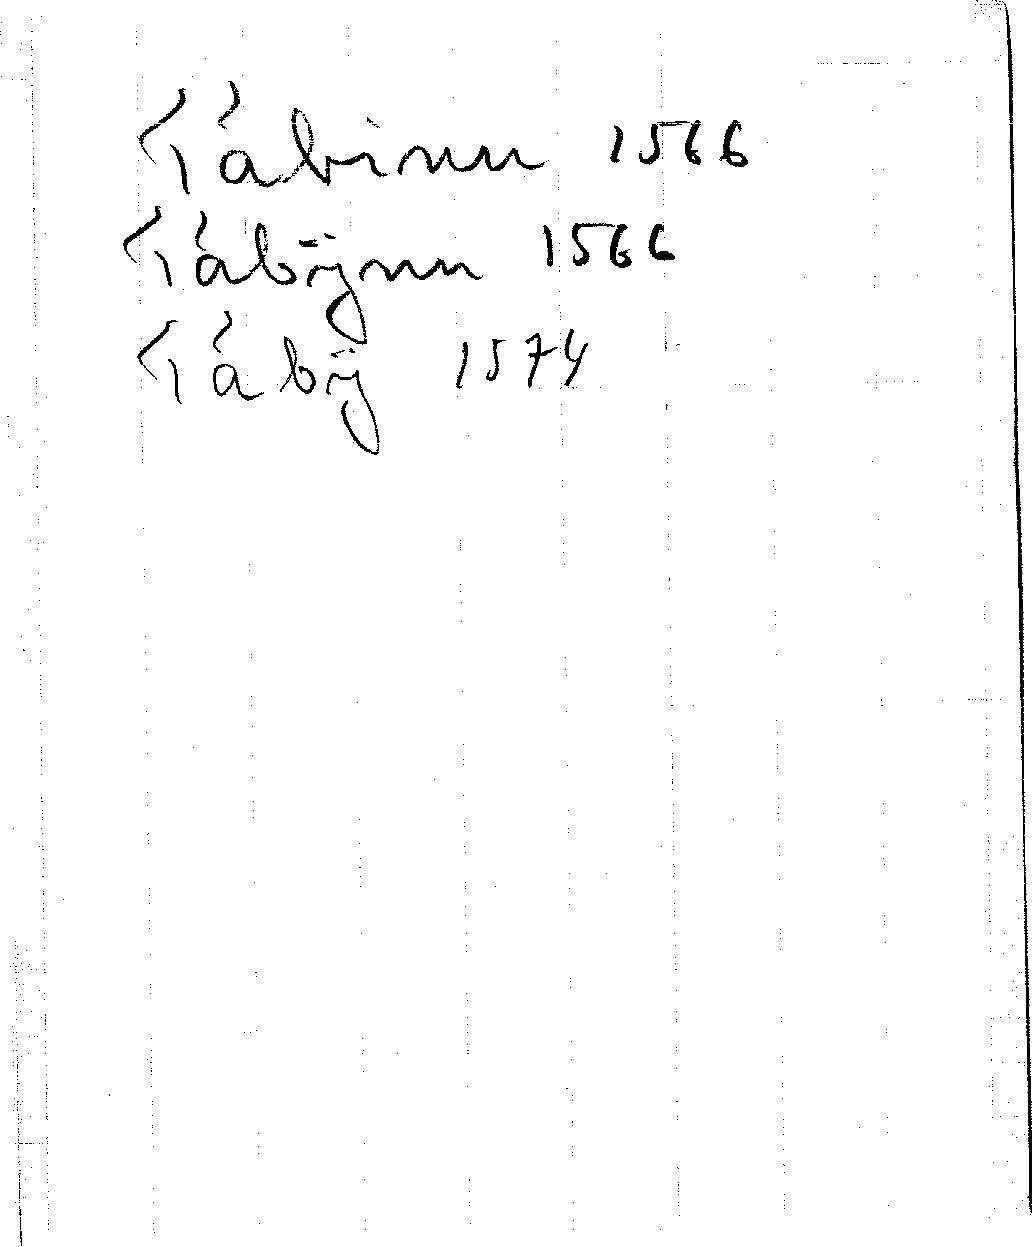 Tåbinn 1566
Tåbÿnn 1566
Tåbÿ 1574